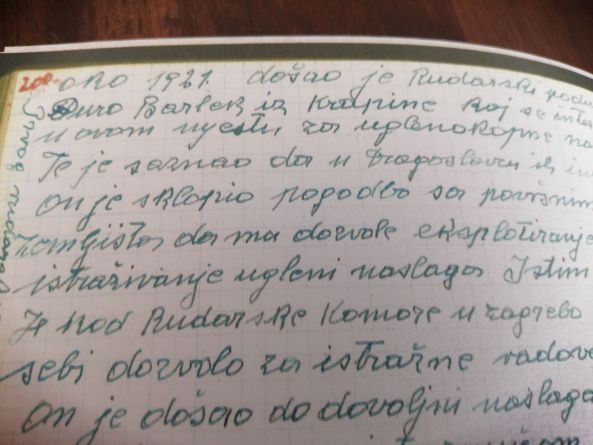 oko 1921. došao je Rudarski podu
Đuro Barlek iz Krapine koj se inte
u ovom mjestu za uglenokopne na
Te je saznao da u Dragoslavu ih i
On je sklopio pogodbo sa površnim
zemljišta da mu dozvole eksplotiranje
istraživanje ugleni naslaga Istim
Je kod Rudarske Komore u zagrebo
sebi dozvolo za istražne radove
On je došao do dovoljni naslaga